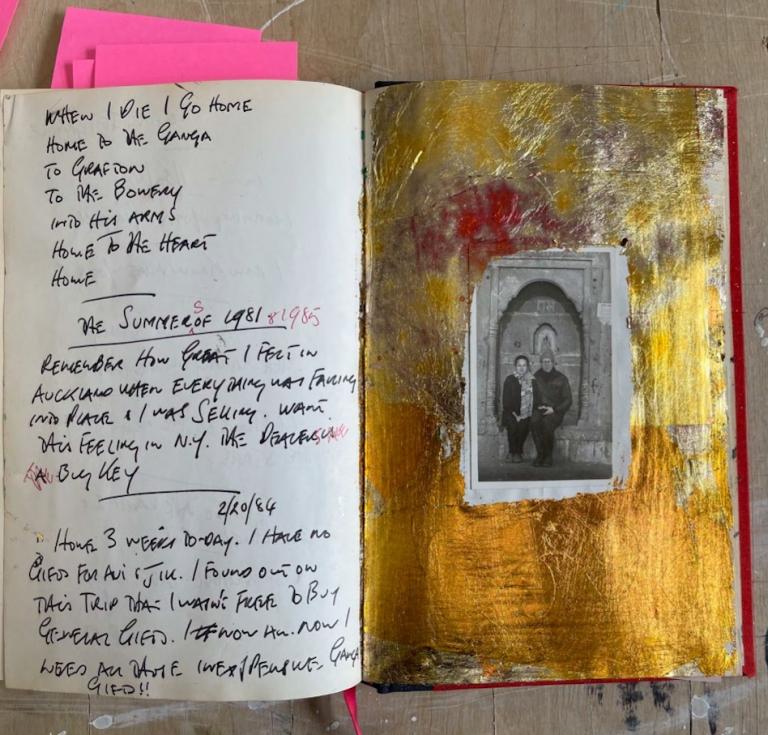 WHEN I DIE I GO HOME
HOME TO THE GANGA
TO GRAFTON
TO THE BOWERY
INTO HIS ARMS
HOME TO THE HEART
HOME
THE SUMMERS OF 1981 & 1985
REMEMBER HOW GREAT I FELT IN
AUCKLAND WHEN EVERYTHING WAS FALLING
INTO PLACE & I WAS SELLING. WANT
THIS FEELING IN N.Y. THE DEALER
BUY KEY
2/20/84
HOME 3 WEEKS TO-DAY. I HAVE NO
GIFTS FOR AVI & JIK. I FOUND OUT ON
THIS TRIP THAT I WASN'T FREE TO BUY
GENERAL GIFTS. I NOW AM. NOW I
NEED ALL THOSE INEXPENSIVE GANGA
GIFTS!!